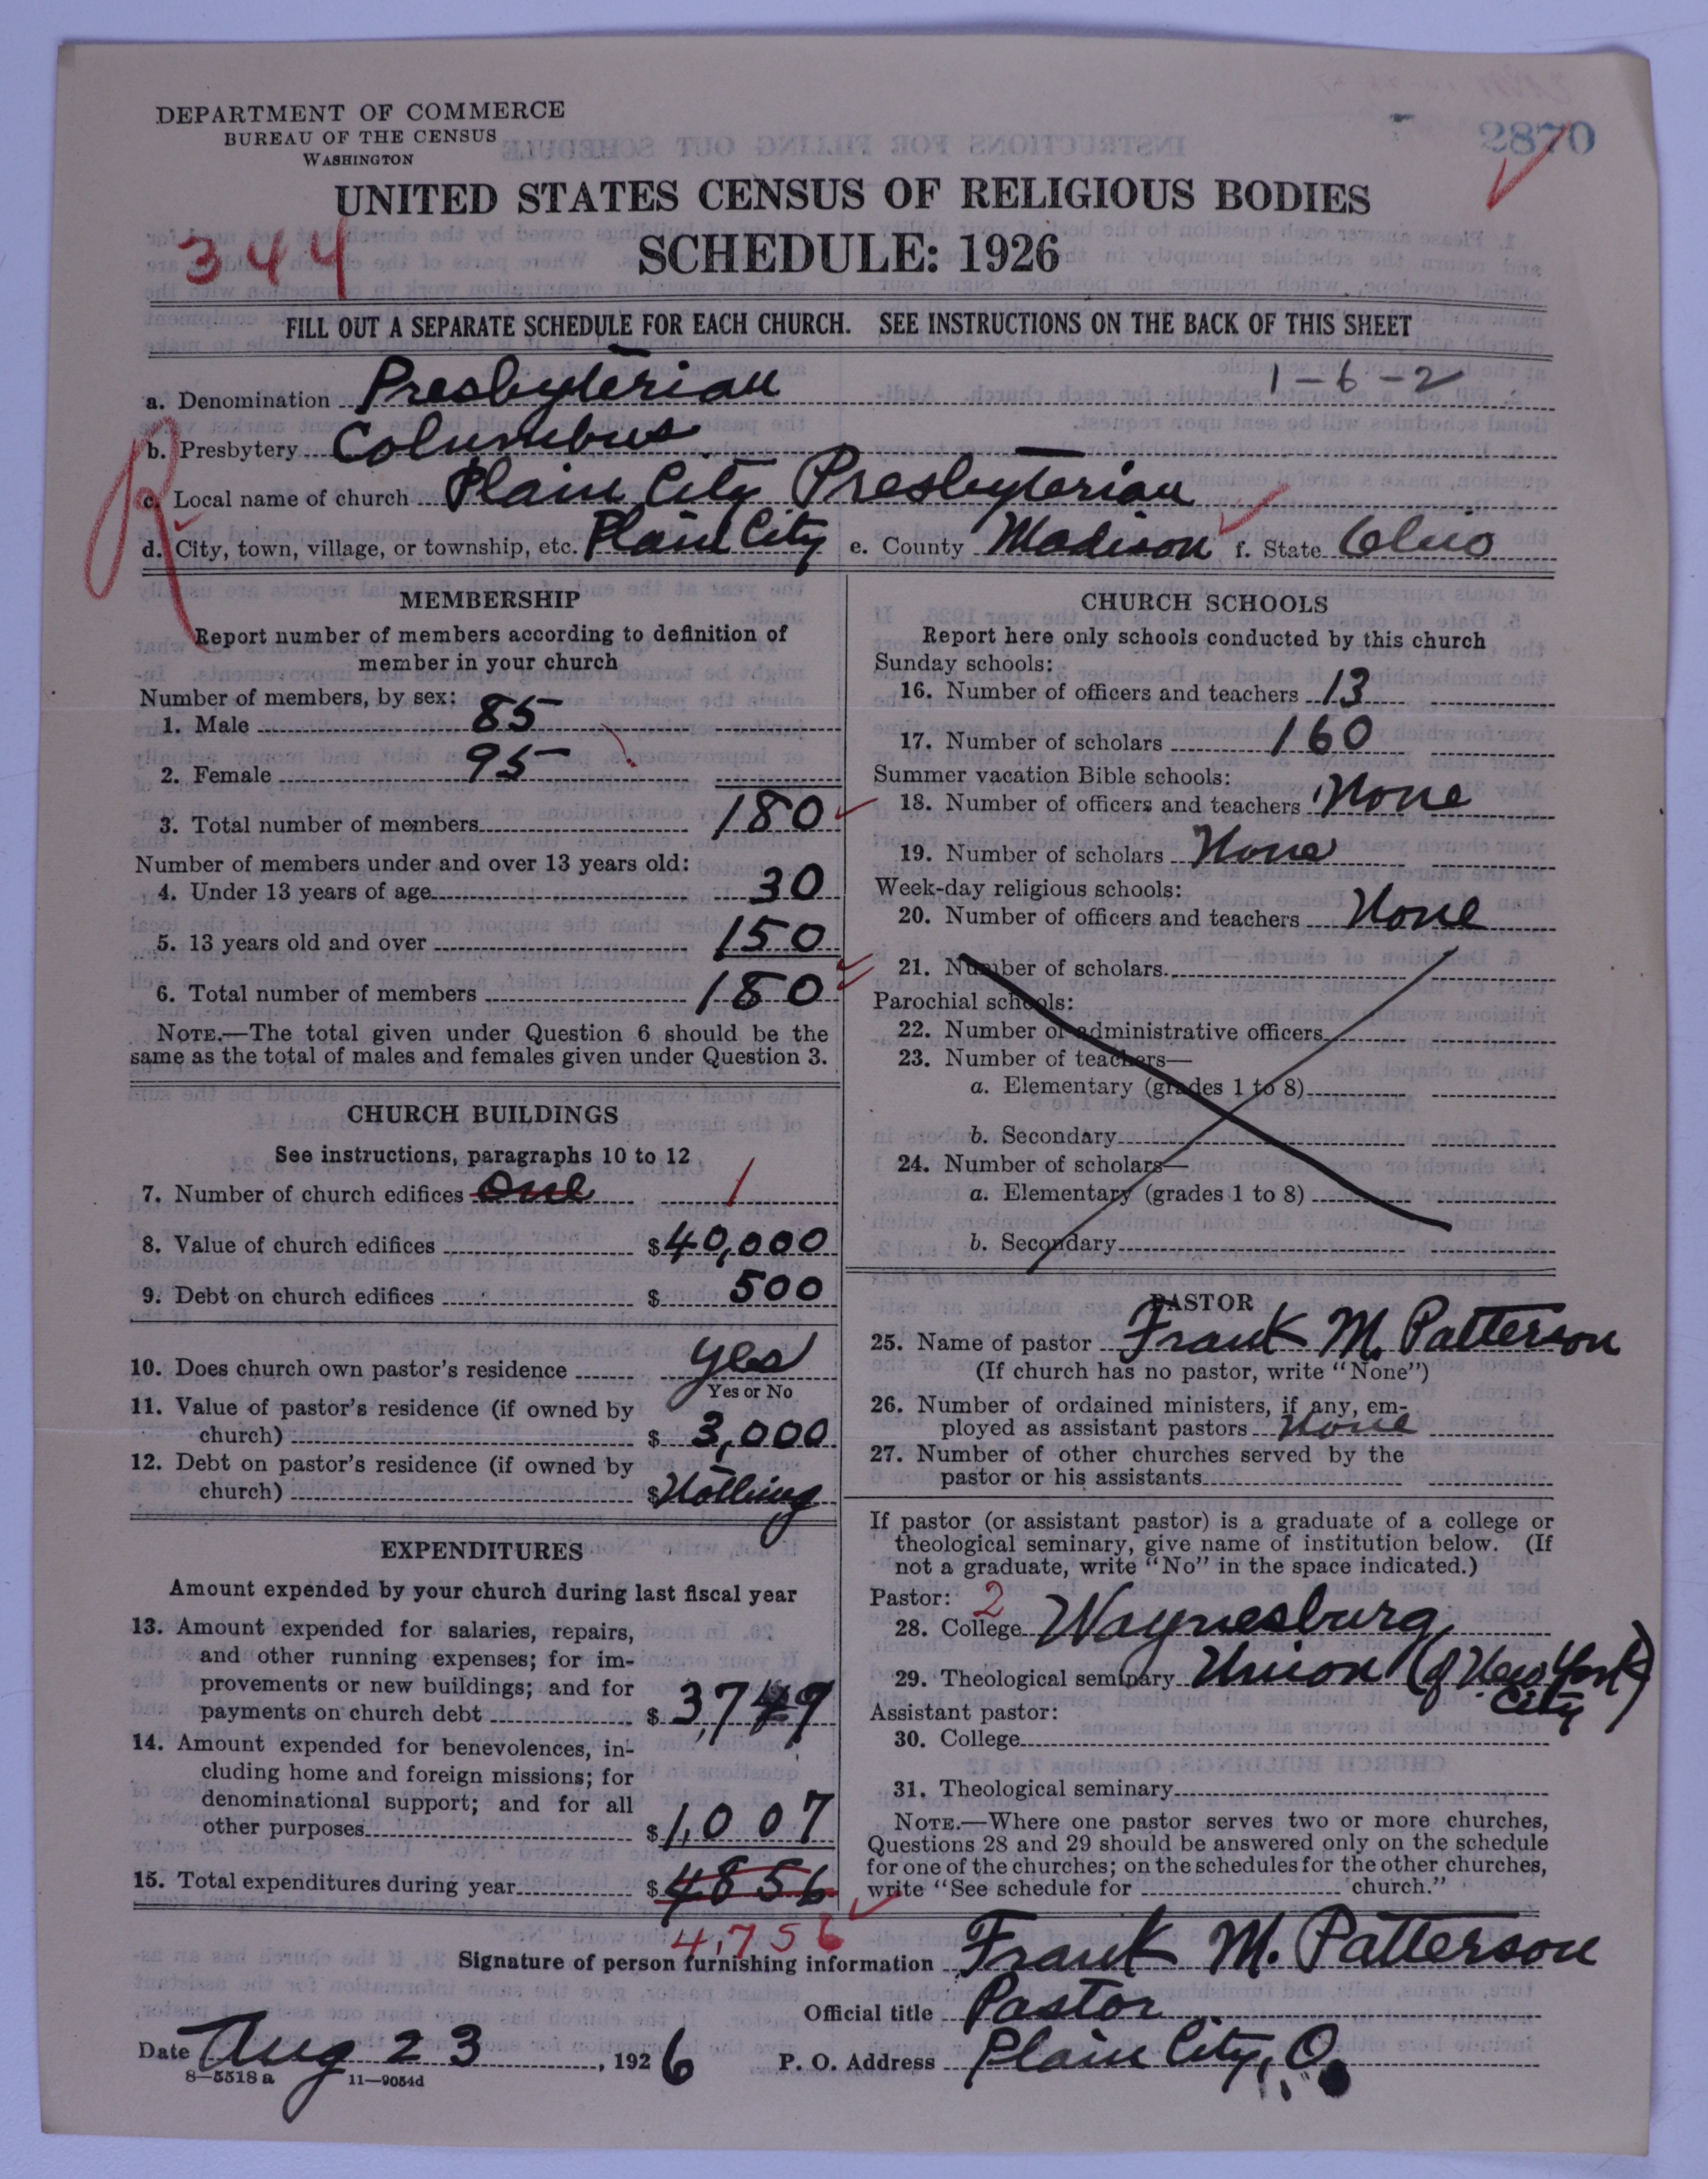 DEPARTMENT OF COMMERCE
BUREAU OF THE CENSUS
WASHINGTON
2870
UNITED STATES CENSUS OF RELIGIOUS BODIES
344
SCHEDULE: 1926
FILL OUT A SEPARATE SCHEDULE FOR EACH CHURCH. SEE INSTRUCTIONS ON THE BACK OF THIS SHEET
1-6-2
a. Denomination Presbyterian
b. Presbytery Columbus
c. Local name of church Plain City Presbyterian
d. City, town, village, or township, etc. Plain City e. County Madison f. State Ohio
MEMBERSHIP
Report number of members according to definition of
member in your church
Number of members, by sex:
1. Male 85
2. Female 95
3. Total number of members 180
Number of members under and over 13 years old:
4. Under 13 years of age 30
5. 13 years old and over 150
6. Total number of members 180
NOTE.—The total given under Question 6 should be the
same as the total of males and females given under Question 3.
CHURCH BUILDINGS
See instructions, paragraphs 10 to 12
7. Number of church edifices One 1
8. Value of church edifices $40,000
9. Debt on church edifices $ 500
10. Does church own pastor's residence yes
Yes or No
11. Value of pastor's residence (if owned by
church) $ 3,000
12. Debt on pastor's residence (if owned by
church) $ Nothing
EXPENDITURES
Amount expended by your church during last fiscal year
13. Amount expended for salaries, repairs,
and other running expenses; for im-
provements or new buildings; and for
payments on church debt $ 3,749
14. Amount expended for benevolences, in-
cluding home and foreign missions; for
denominational support; and for all
other purposes $ 1,007
15. Total expenditures during year $ 4856
4,756
CHURCH SCHOOLS
Report here only schools conducted by this church
Sunday schools:
16. Number of officers and teachers 13
17. Number of scholars 160
Summer vacation Bible schools:
18. Number of officers and teachers None
19. Number of scholars None
Week-day religious schools:
20. Number of officers and teachers None
21. Number of scholars.
Parochial schools:
22. Number of administrative officers
23. Number of teachers—
a. Elementary (grades 1 to 8)
b. Secondary
24. Number of scholars—
a. Elementary (grades 1 to 8)
b. Secondary
PASTOR
25. Name of pastor Frank M. Patterson
(If church has no pastor, write "None")
26. Number of ordained ministers, if any, em-
ployed as assistant pastors None
27. Number of other churches served by the
pastor or his assistants
If pastor (or assistant pastor) is a graduate of a college or
theological seminary, give name of institution below. (If
not a graduate, write "No" in the space indicated.)
Pastor: 2
28. College Waynesburg
29. Theological seminary Union (of New York
City)
Assistant pastor:
30. College
31. Theological seminary
NOTE.—Where one pastor serves two or more churches,
Questions 28 and 29 should be answered only on the schedule
for one of the churches; on the schedules for the other churches,
write "See schedule for church."
Signature of person furnishing information Frank M. Patterson
Official title Pastor
Date Aug 23, 1926 P. O. Address Plain City, O.
8—5518 a 11—9054d